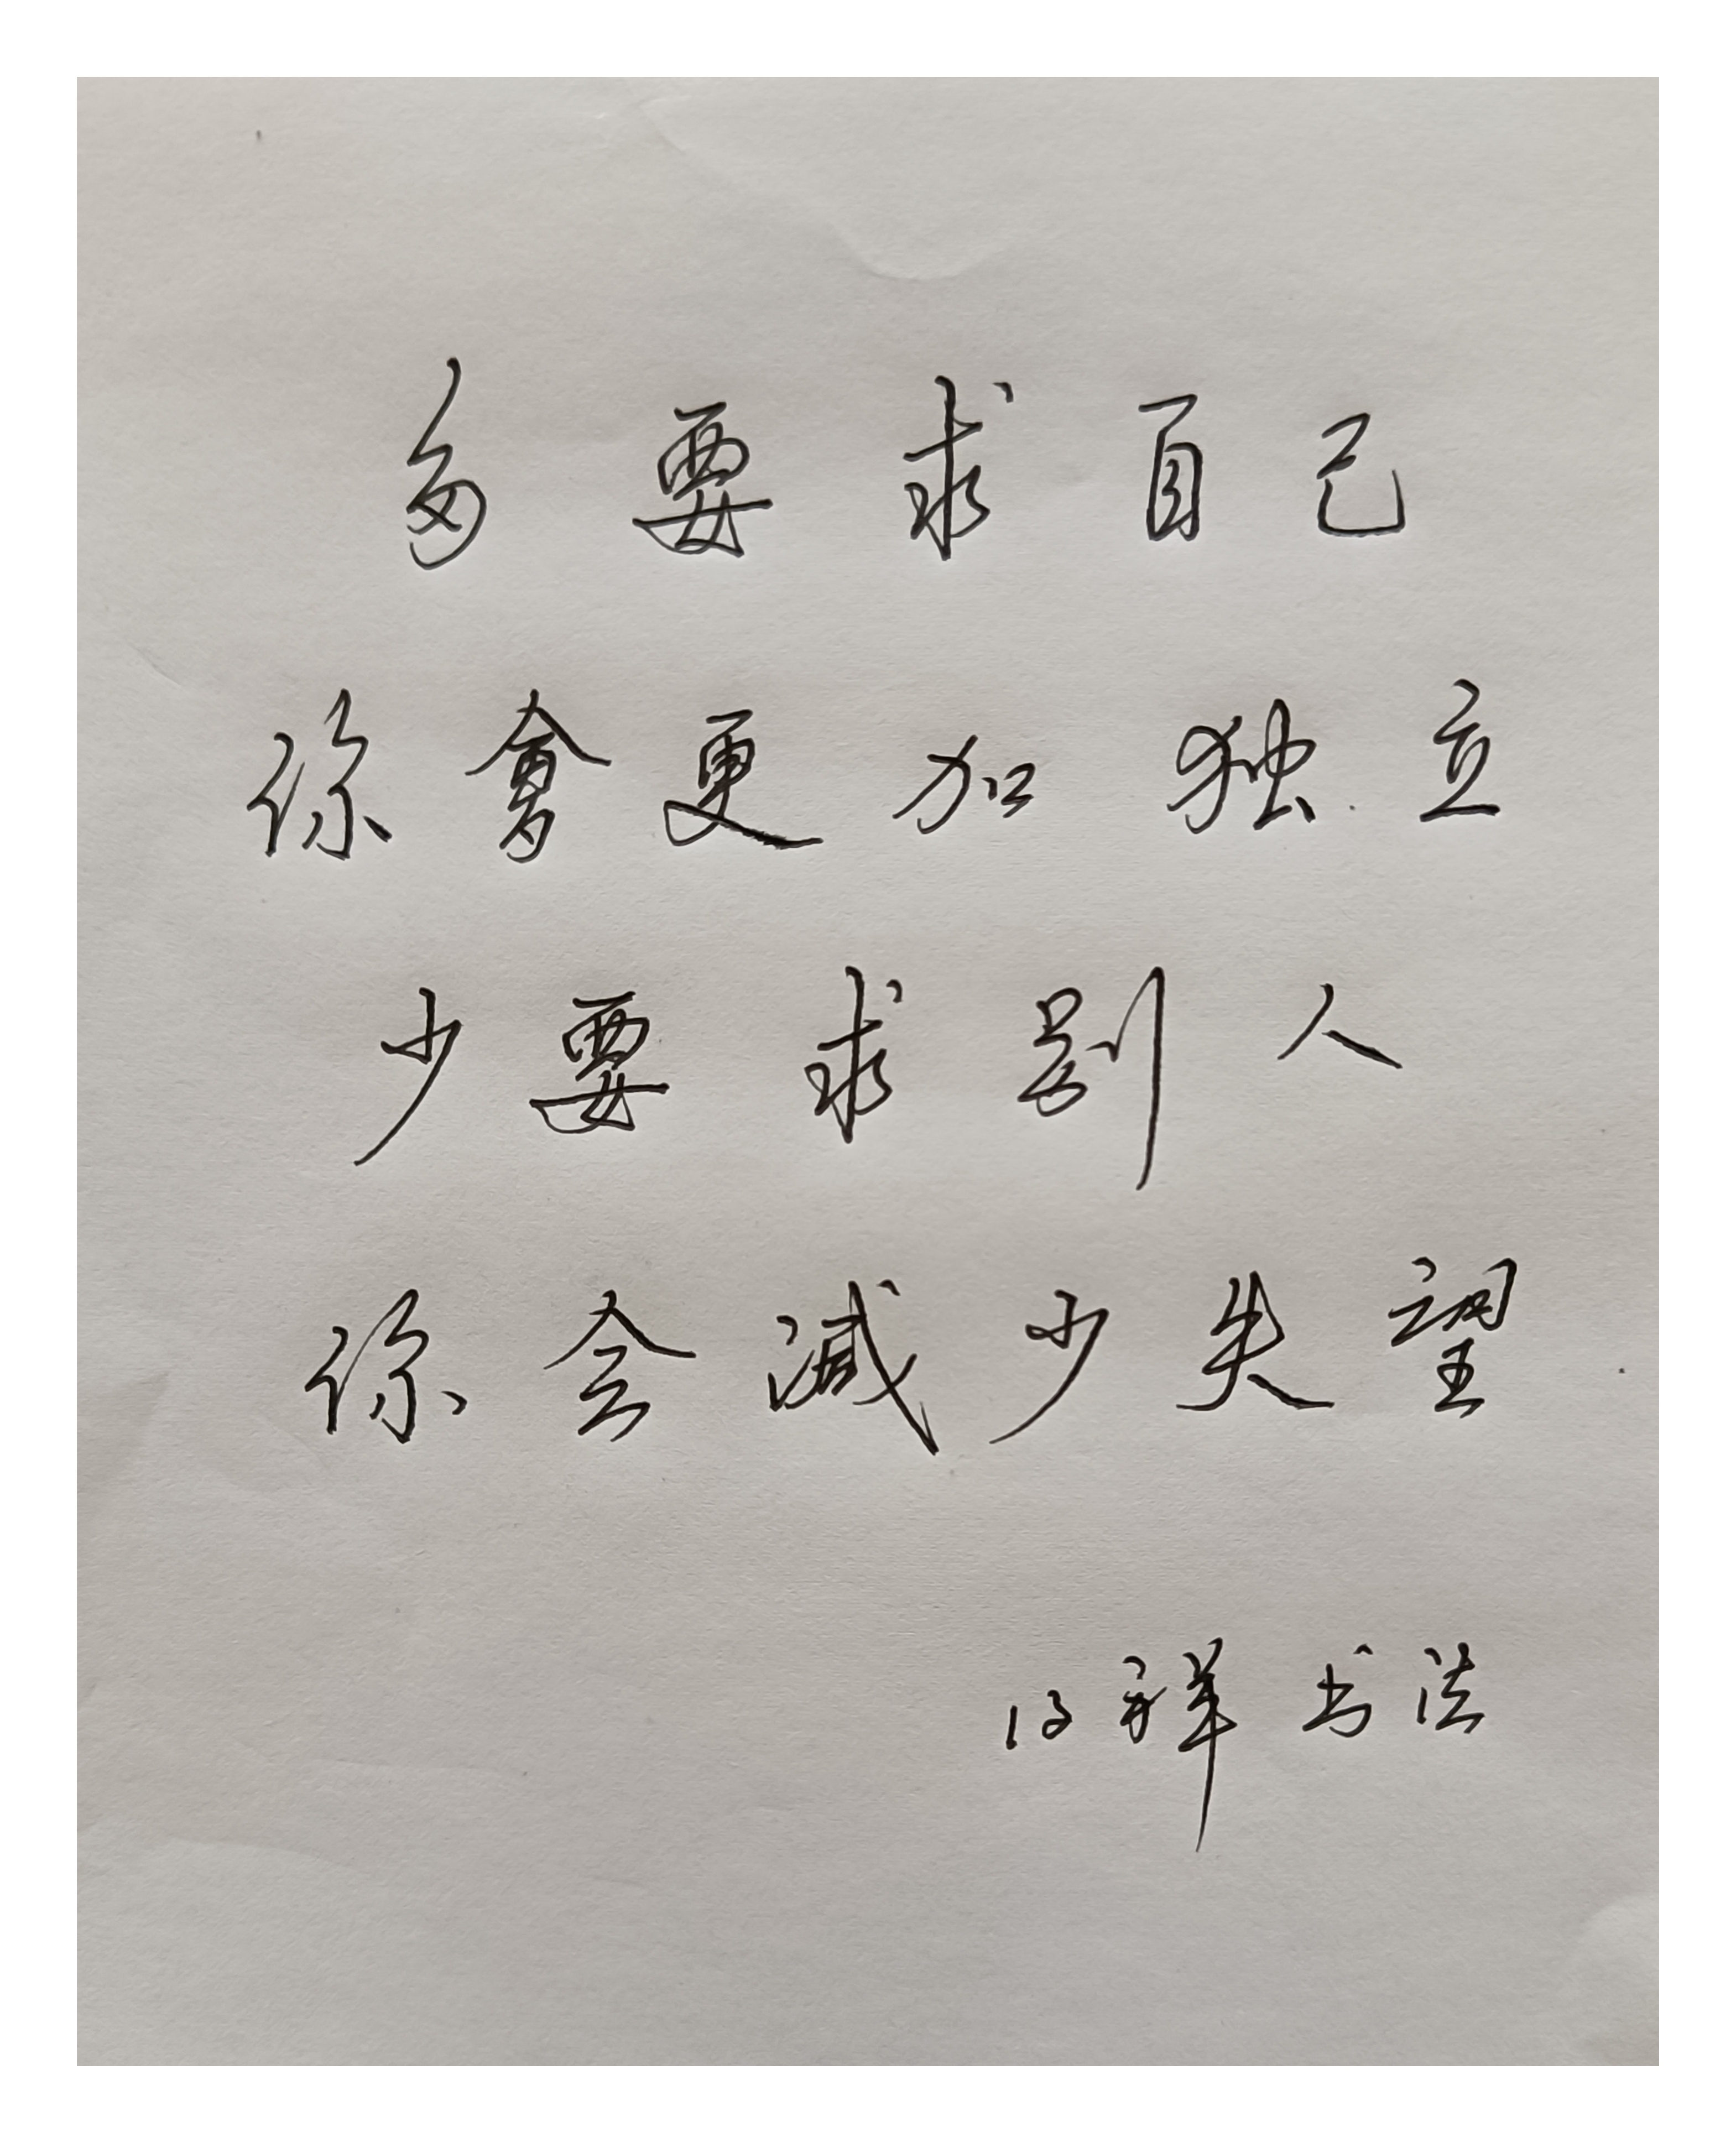 多要求自己
你會更加独立
少要求别人
你会减少失望
祥书法